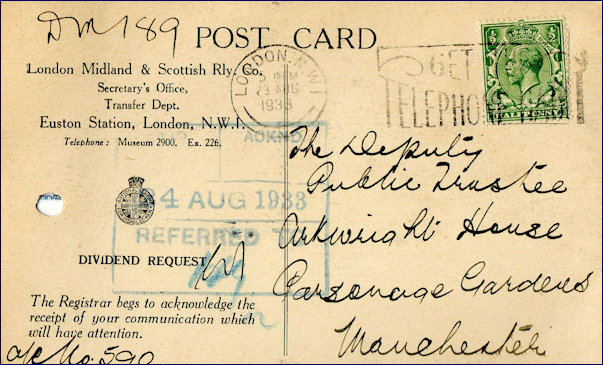 DM 189
POST CARD
London Midland & Scottish Rly. Co.
Secretary's Office,
Transfer Dept.
Euston Station, London, N.W.1.
Telephone: Museum 2900. Ex. 226.
DIVIDEND REQUEST
The Registrar begs to acknowledge the
receipt of your communication which
will have attention.
a/c No. 590
LONDON. N.W.1
15 PM
23 AUG
1933
GET
TELEPHONE
HALFPENNY
ACKND
24 AUG 1933
REFERRED T
The Deputy
Public Trustee
Arkwright House
Parsonage Gardens
Manchester